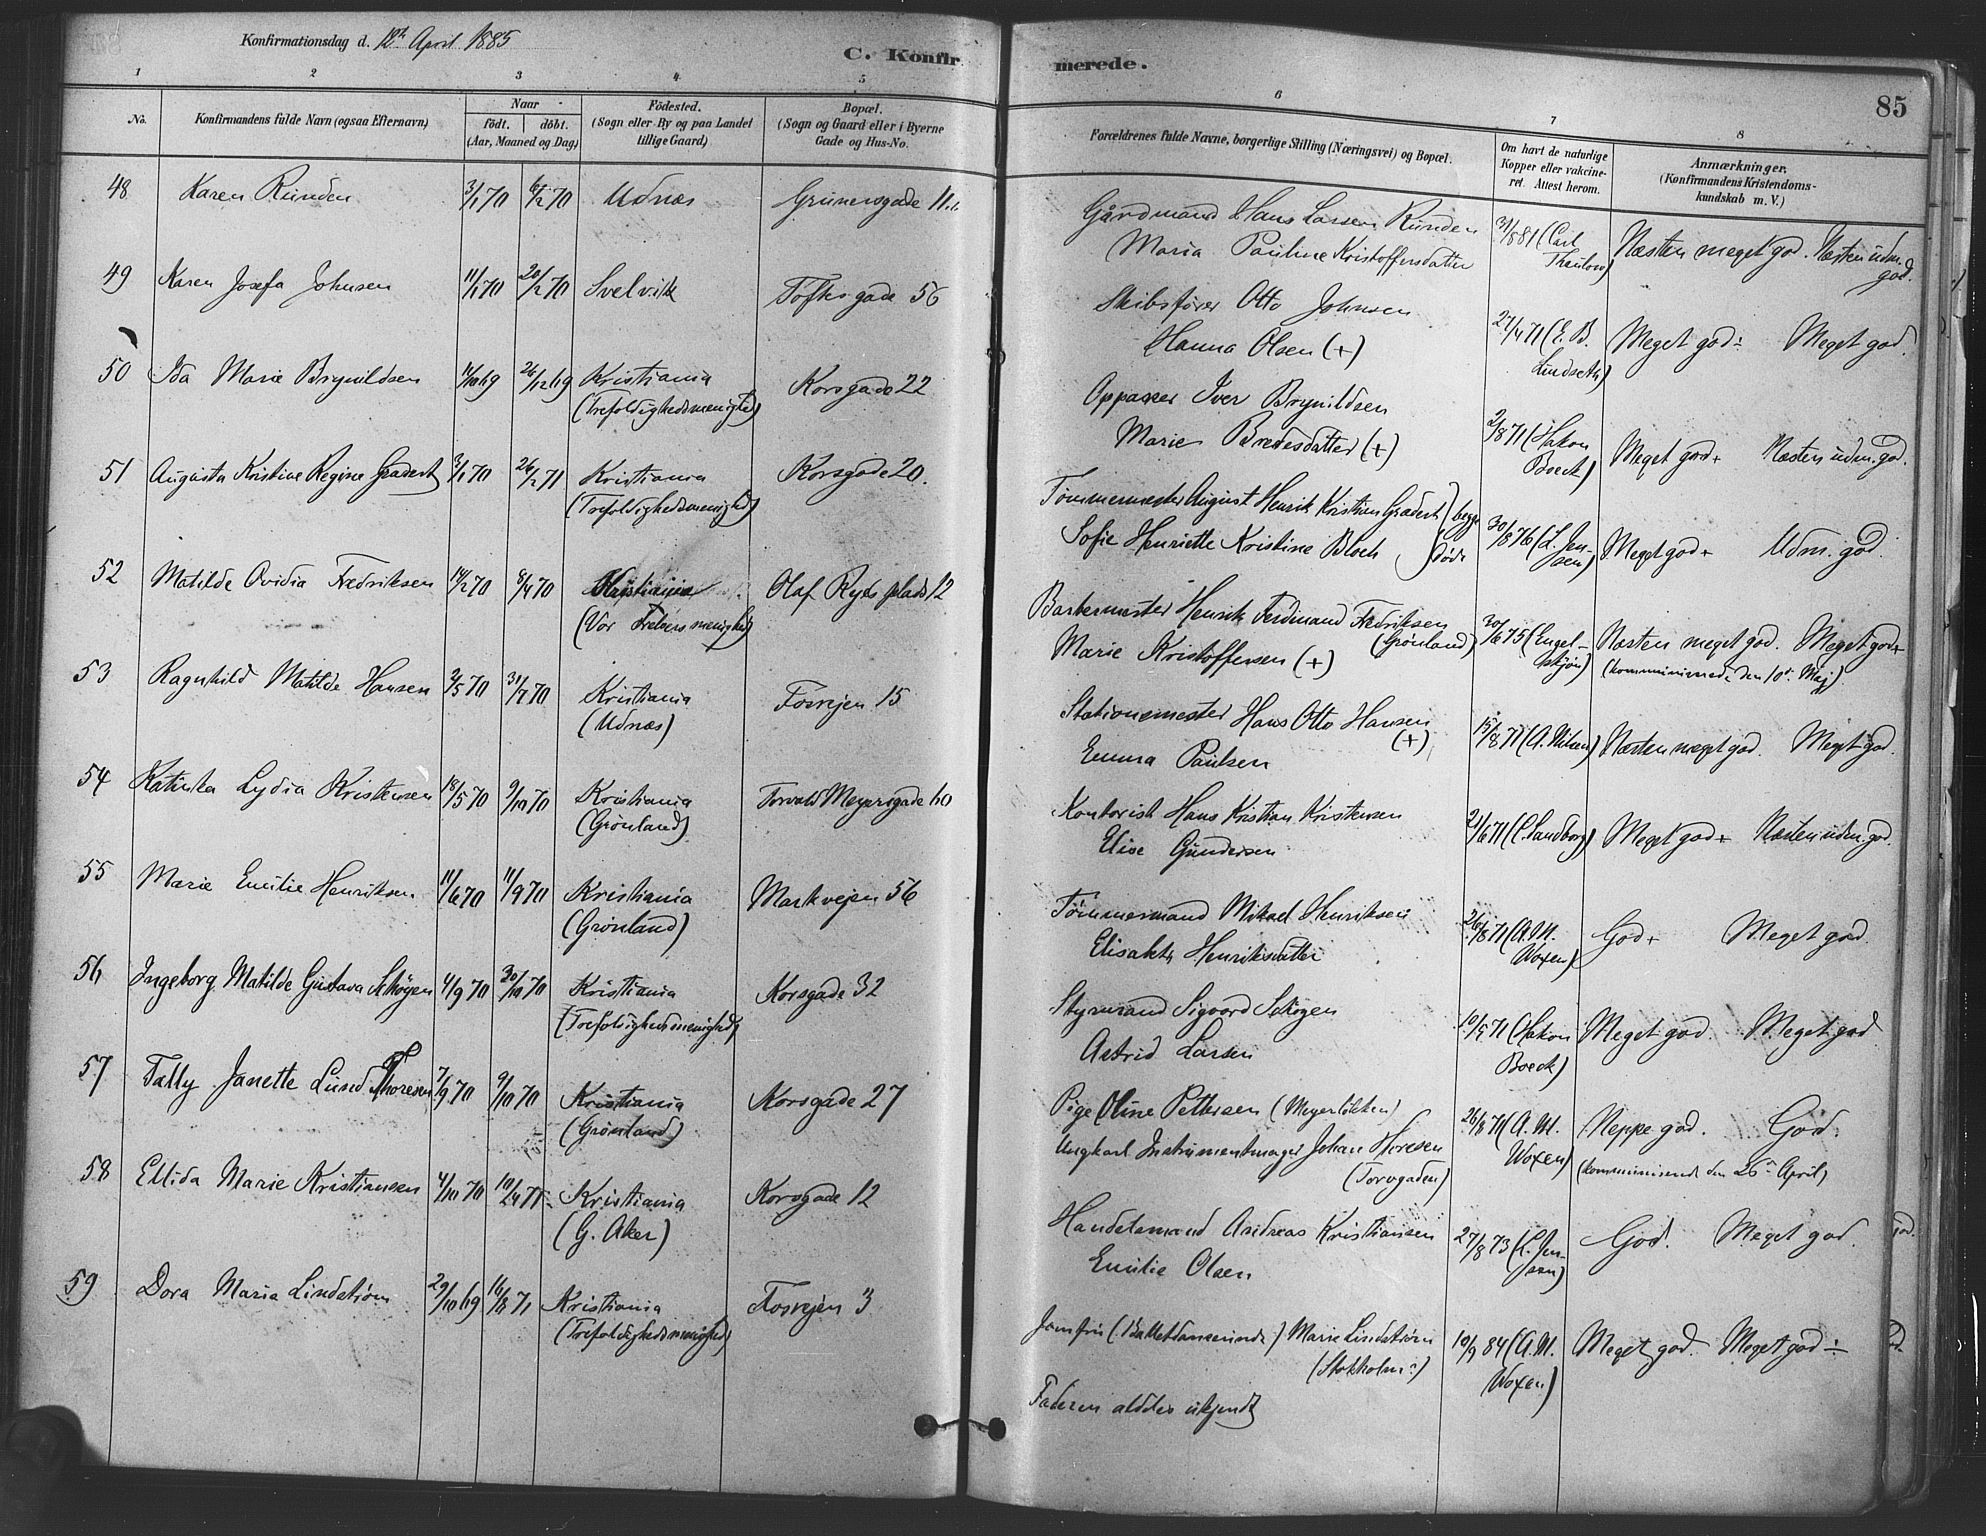 Konfirmationsdag d. 12te April 1885
C. Konfirmerede.
85
1 2 3 4 5 6 7 8
No.
Konfirmandens fulde Navn (ogsaa Efternavn)
Naar
født. døbt.
(Aar, Maaned og Dag)
Fødested.
(Sogn eller By og paa Landet
tillige Gaard)
Bopæl.
(Sogn og Gaard eller i Byerne
Gade og Hus-No.
Forældrenes fulde Navne, borgerlige Stilling (Næringsvei) og Bopæl.
Om havt de naturlige
Kopper eller vakcine-
ret. Attest herom.
Anmærkninger.
(Konfirmandens Kristendoms-
kundskab m. V.)
48 Karen Runden 3/1 70 6/2 70 Udnæs Grünersgade 11
Gårdmand Hans Larsen Runden 31/8 81 (Carl
Maria Pauline Kristoffersdatter Thaulow) Næsten meget god. Næsten udm.
god.
49 Karen Josefa Johnsen 11/1 70 20/2 70 Svelvik Toftes gade 56
Skibsfører Otto Johnsen 27/4 71 (E. B.
Hanna Olsen (+) Lindseth) Meget god ÷ Meget god.
50 Ida Marie Brynildsen 14/10 69 26/12 69 Kristiania Korsgade 22
(Trefoldighedsmenighed)
Oppasser Iver Brynildsen 2/8 71 (Hakon
Marie Bredesdatter (+) Boeck) Meget god + Næsten udm. god.
51 Augusta Kristine Regine Gradert 3/1 70 26/2 71 Kristiania Korsgade 20.
(Trefoldighedsmenighed)
Tømmermester August Henrik Kristian Gradert } begge 30/8 76 (L. Jen-
Sofie Henriette Kristine Bloch } døde sen) Meget god + Udm. god.
52 Matilde Ovidia Fredriksen 14/2 70 8/4 70 Kristiania Olaf Ryes plads 12
(Vor Frelsers menighed)
Barbermester Henrik Ferdinand Fredriksen
(Grønland) 30/6 75 (Engel-
Marie Kristoffersen (+) skjøn) Næsten meget god. Meget god +
(kommunicerede den 10de Maj)
53 Ragnhild Matilde Hansen 2/5 70 31/7 70 Kristiania Fosvejen 15
(Udnæs)
Stationsmester Hans Otto Hansen
(+) 15/8 71 (A. Nilsen) Næsten meget god. Meget god.
Emma Paulsen
54 Katinka Lydia Kristensen 18/5 70 9/10 70 Kristiania Torvald Meyersgade 60
(Grønland)
Kontorist Hans Kristian Kristensen 21/6 71 (C. Sandborg) Meget god + Næsten udm. god.
Elise Gundersen
55 Marie Emilie Henriksen 11/6 70 11/9 70 Kristiania Markvejen 56
(Grønland)
Tømmermand Mikael Henriksen 26/8 71 (A. M.
Elisabth Henriksdatter Woxen) God + Meget god.
56 Ingeborg Matilde Gustava Schøyen 4/9 70 30/10 70 Kristiania Korsgade 32
(Trefoldighedsmenighed)
Styrmand Sigvard Schøyen 10/5 71 (Hakon
Astrid Larsen Boeck) Meget god. Meget god
57 Fally Janette Lund Thoresen 7/9 70 9/10 70 Kristiania Korsgade 27
(Grønland)
Pige Oline Pettersen (Meyerløkken) 26/8 71 (A. M.
Ungkarl Instrumentmager Johan Thoresen Woxen) Neppe god. God.
(Torvgaden) (kommunicerende den 26de April)
58 Ellida Marie Kristiansen 4/10 70 10/4 71 Kristiania Korsgade 12
(G. Aker)
Handelsmand Andreas Kristiansen 27/8 73 (L. Jen-
Emilie Olsen sen) God. Meget god.
59 Dora Maria Lindstrøm 29/10 69 16/8 71 Kristiania Fosvejen 3
(Trefoldighedsmenighed)
Jomfru (Balletdanserinde) Marie Lindstrøm 10/9 84 (A. M.
(Stokholm?) Woxen) Meget god. Meget god ÷
Faderen aldeles ukjendt